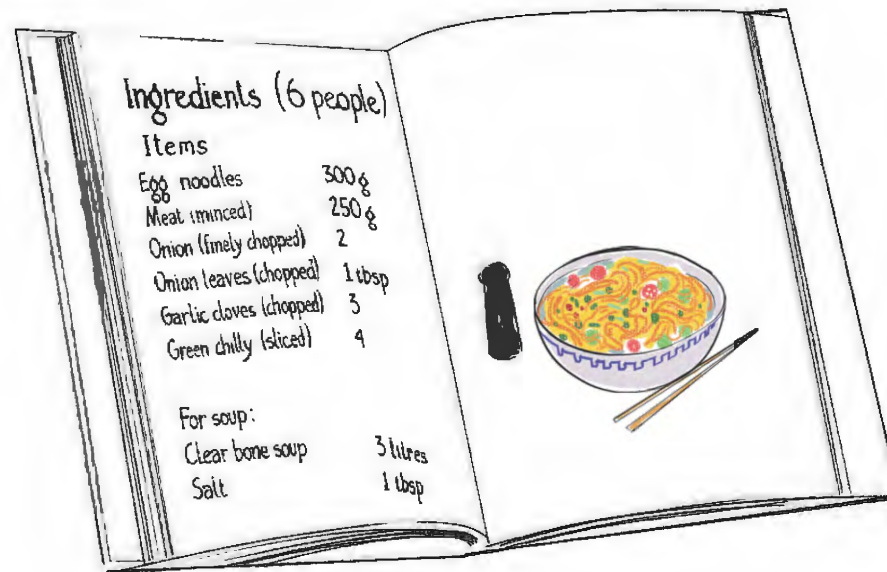 Ingredients (6 people)
Items
Egg noodles 300g
Meat (minced) 250g
Onion (finely chopped) 2
Onion leaves (chopped) 1 tbsp
Garlic cloves (chopped) 3
Green chilly (sliced) 4
For soup:
Clear bone soup 3 litres
Salt 1 tbsp